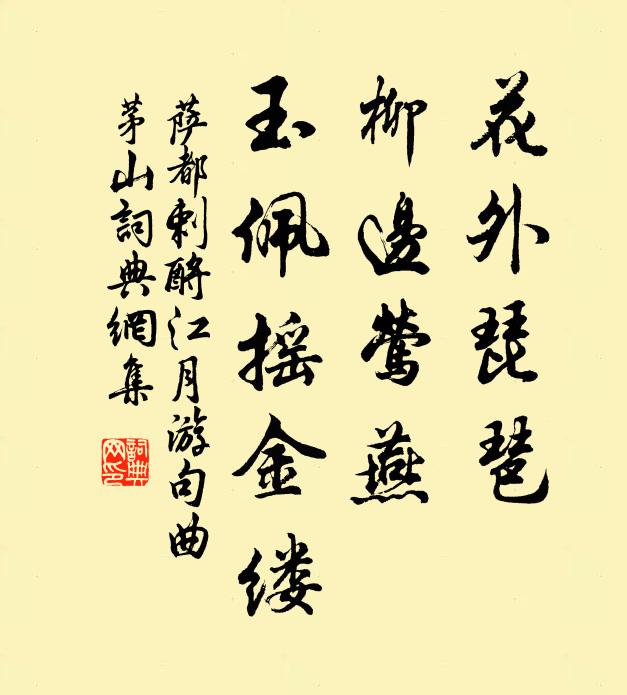 花外琵琶
柳邊鶯燕
玉佩摇金缕
萨都剌酹江月游句曲
茅山詞典網集
詞典网印